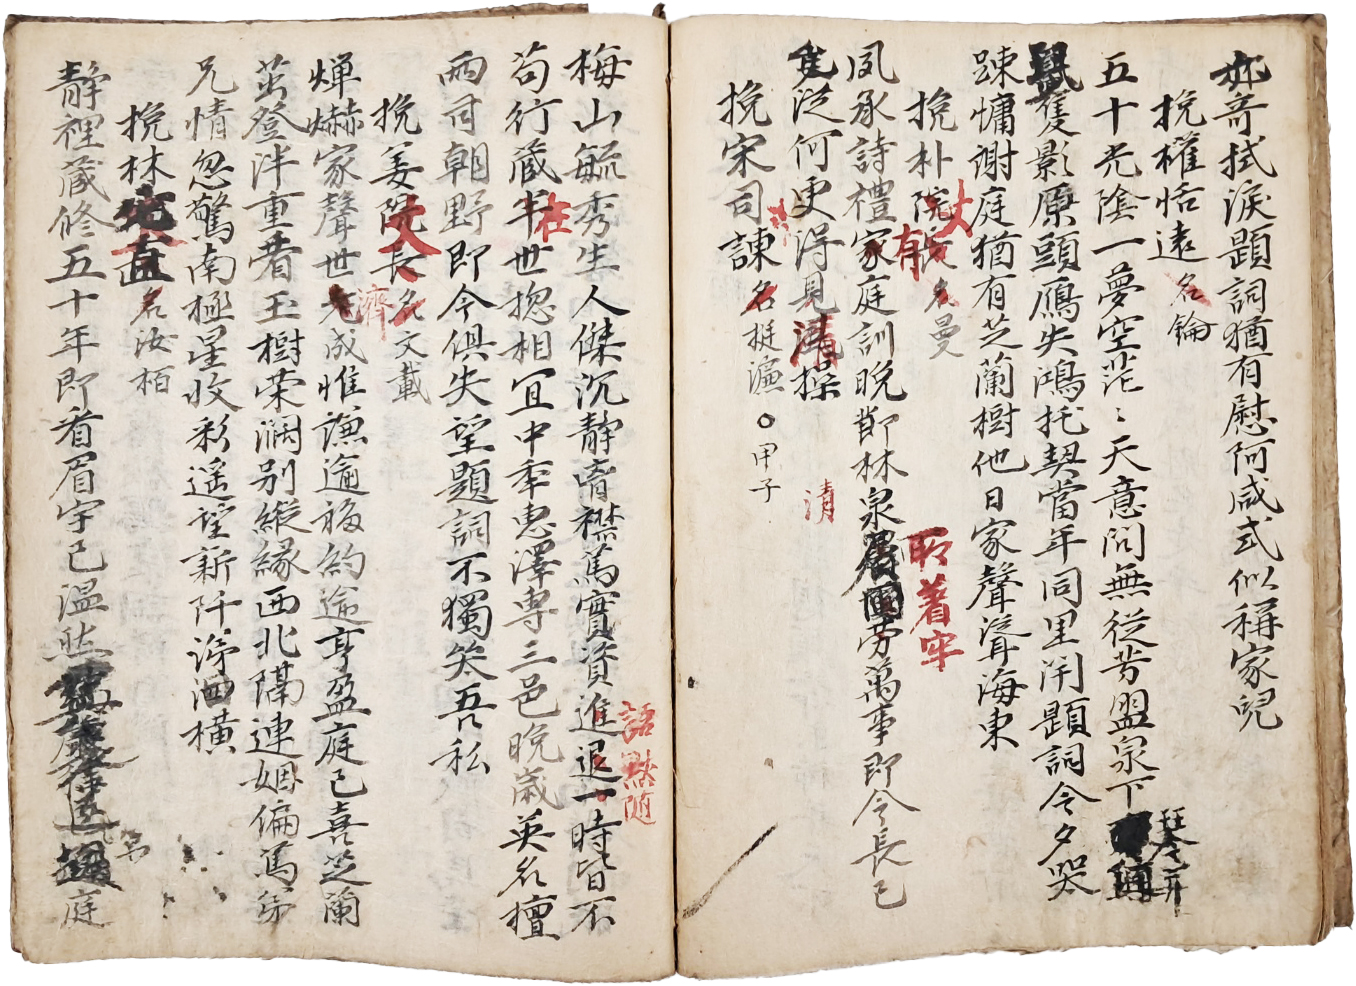 哀哥拭淚題詞猶有慰阿咸式似稱家兒
挽權恬遠 名錀
五十光陰一夢空茫〻天意問無從芳盟泉下
琴
隻影原頭鴈失鴻托契當年同里閈題詞今夕哭
踈慵謝庭猶有芝蘭樹他日家聲聳海東
挽朴院 丈 名曼
有
夙承詩禮家庭訓晩節林泉 勞萬事即今長已
耶著牢
隻從何更得見清操
清
挽宋司諫 名挺濂 ○甲子
梅山毓秀生人傑沉靜胷襟篤實資進退一時皆不
語默隨
苟行藏半世摠相宜中年惠澤専三邑晩歲英名擅
在
兩司朝野即今俱失望題詞不獨爲吾私
挽姜 丈 名文載
燀爀家聲世 成惟謙逾福約逾亨盈庭已喜芝蘭
濟
茁登泮重看玉樹荣濶别縱緣西北隔連姻偏篤弟
兄情忽驚南極星收彩遥望新阡涕泗横
挽林 直 名汝栢
静裡蔵修五十年即看眉宇已温然 庭